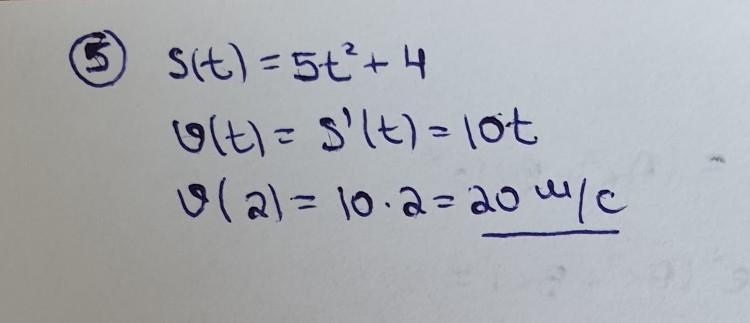 ⑤ S(t) = 5t² + 4
υ(t) = S'(t) = 10t
υ(2) = 10 · 2 = 20 м/с